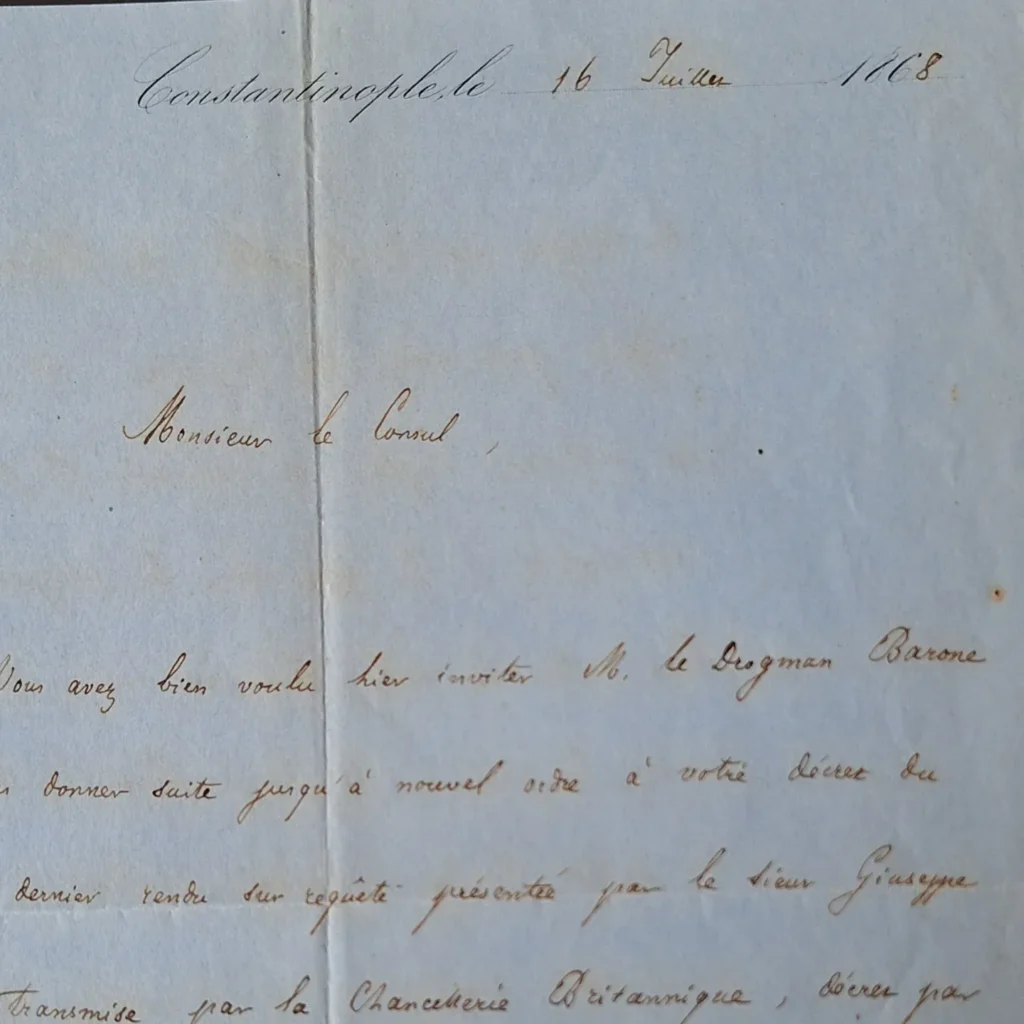 Constantinople, le 16 Juillet 1868
Monsieur le Consul,
Vous avez bien voulu hier inviter M. le Drogman Barone
donner suite jusqu'à nouvel ordre à votre décret du
dernier rendu sur requête présentée par le sieur Giuseppe
transmise par la Chancellerie Britannique, décret par